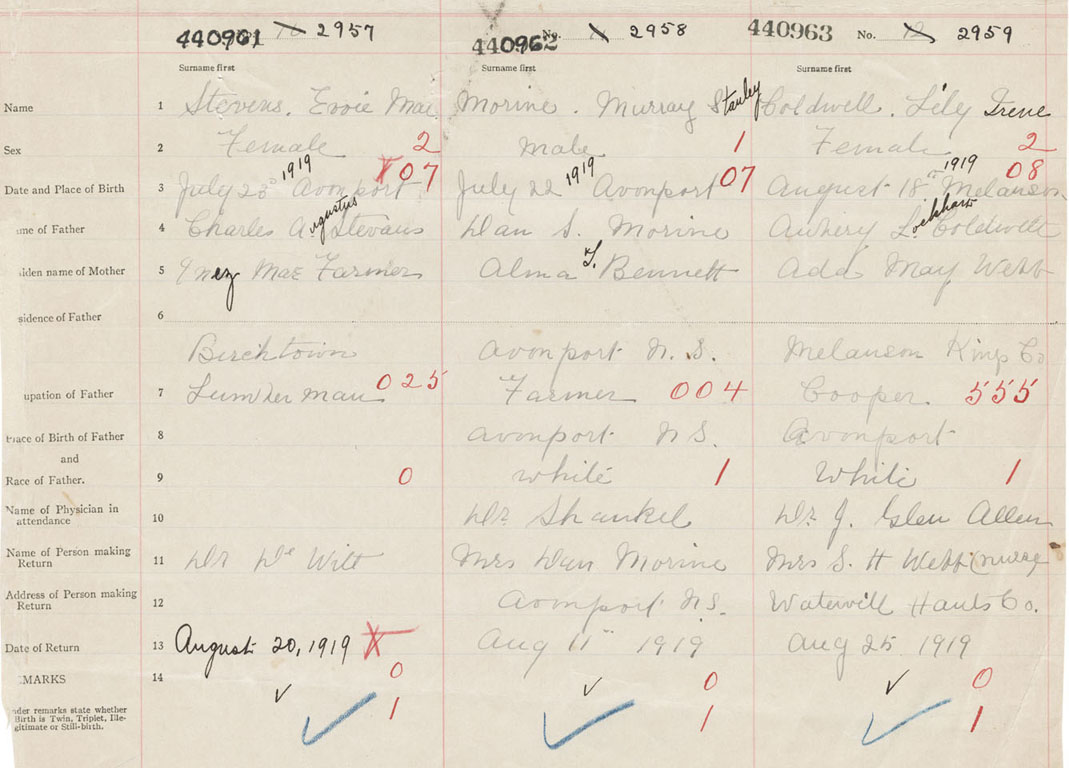 440961 2957 440962 No. 2958 440963 No. 2959
Surname first Surname first Surname first
Name 1 Stevens. Evoie Mae Morine. Murray Stanley Coldwell. Lily Irene
Sex 2 Female 2 Male 1 Female 2
Date and Place of Birth 3 July 23 1919 Avonport 07 July 22 1919 Avonport 07 August 18 1919 Melanson 08
me of Father 4 Charles Augustus Stevans Dan S. Morine Lockhart Coldwell
iden name of Mother 5 Inez Mae Farmer Alma T. Bennett Ada May Webb
sidence of Father 6
Birchtown Avonport N.S. Melanson Kings Co
upation of Father 7 Lumber man 025 Farmer 004 Cooper. 555
lace of Birth of Father 8 Avonport N S. Avonport
and
Race of Father. 9 0 White 1 White 1
Name of Physician in
attendance 10 Dr Shankel Dr J. Glen Allen
Name of Person making
Return 11 Dr De Witt Mrs Dan Morine Mrs S. H Webb (nurse
Address of Person making
Return 12 Avonport N.S. Hants Co.
Date of Return 13 August 20, 1919 X Aug 11 1919 Aug 25 1919
MARKS 14 0 0 0
nder remarks state whether
Birth is Twin, Triplet, Ille-
gitimate or Still-birth. 1 1 1